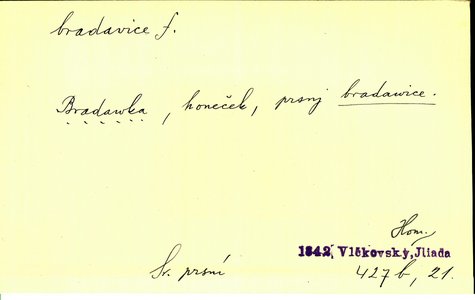 bradavice f.
Bradawka, honeček, prsnj bradawice.
Hom.
1842, Vlčkovský, Jliada
Sr. prsní
427b, 21.